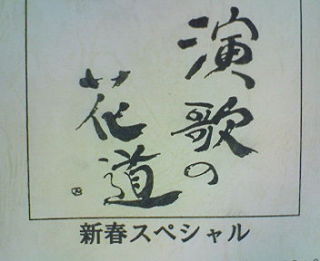 演歌の
花道
新春スペシャル